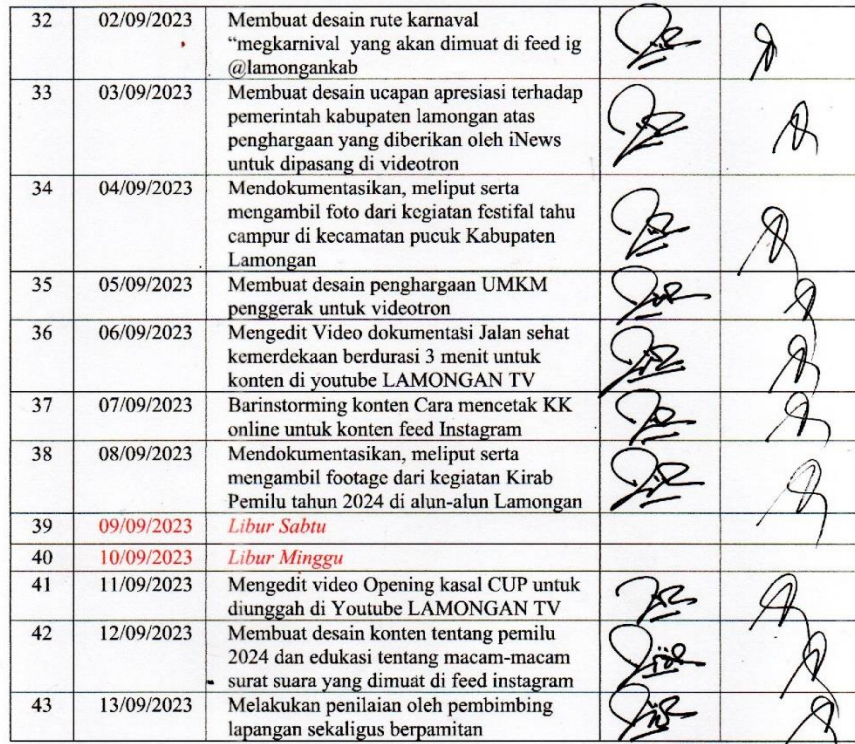 32 02/09/2023 Membuat desain rute karnaval
“megkarnival yang akan dimuat di feed ig
@lamongankab
33 03/09/2023 Membuat desain ucapan apresiasi terhadap
pemerintah kabupaten lamongan atas
penghargaan yang diberikan oleh iNews
untuk dipasang di videotron
34 04/09/2023 Mendokumentasikan, meliput serta
mengambil foto dari kegiatan festifal tahu
campur di kecamatan pucuk Kabupaten
Lamongan
35 05/09/2023 Membuat desain penghargaan UMKM
penggerak untuk videotron
36 06/09/2023 Mengedit Video dokumentasi Jalan sehat
kemerdekaan berdurasi 3 menit untuk
konten di youtube LAMONGAN TV
37 07/09/2023 Barinstorming konten Cara mencetak KK
online untuk konten feed Instagram
38 08/09/2023 Mendokumentasikan, meliput serta
mengambil footage dari kegiatan Kirab
Pemilu tahun 2024 di alun-alun Lamongan
39 09/09/2023 Libur Sabtu
40 10/09/2023 Libur Minggu
41 11/09/2023 Mengedit video Opening kasal CUP untuk
diunggah di Youtube LAMONGAN TV
42 12/09/2023 Membuat desain konten tentang pemilu
2024 dan edukasi tentang macam-macam
surat suara yang dimuat di feed instagram
43 13/09/2023 Melakukan penilaian oleh pembimbing
lapangan sekaligus berpamitan